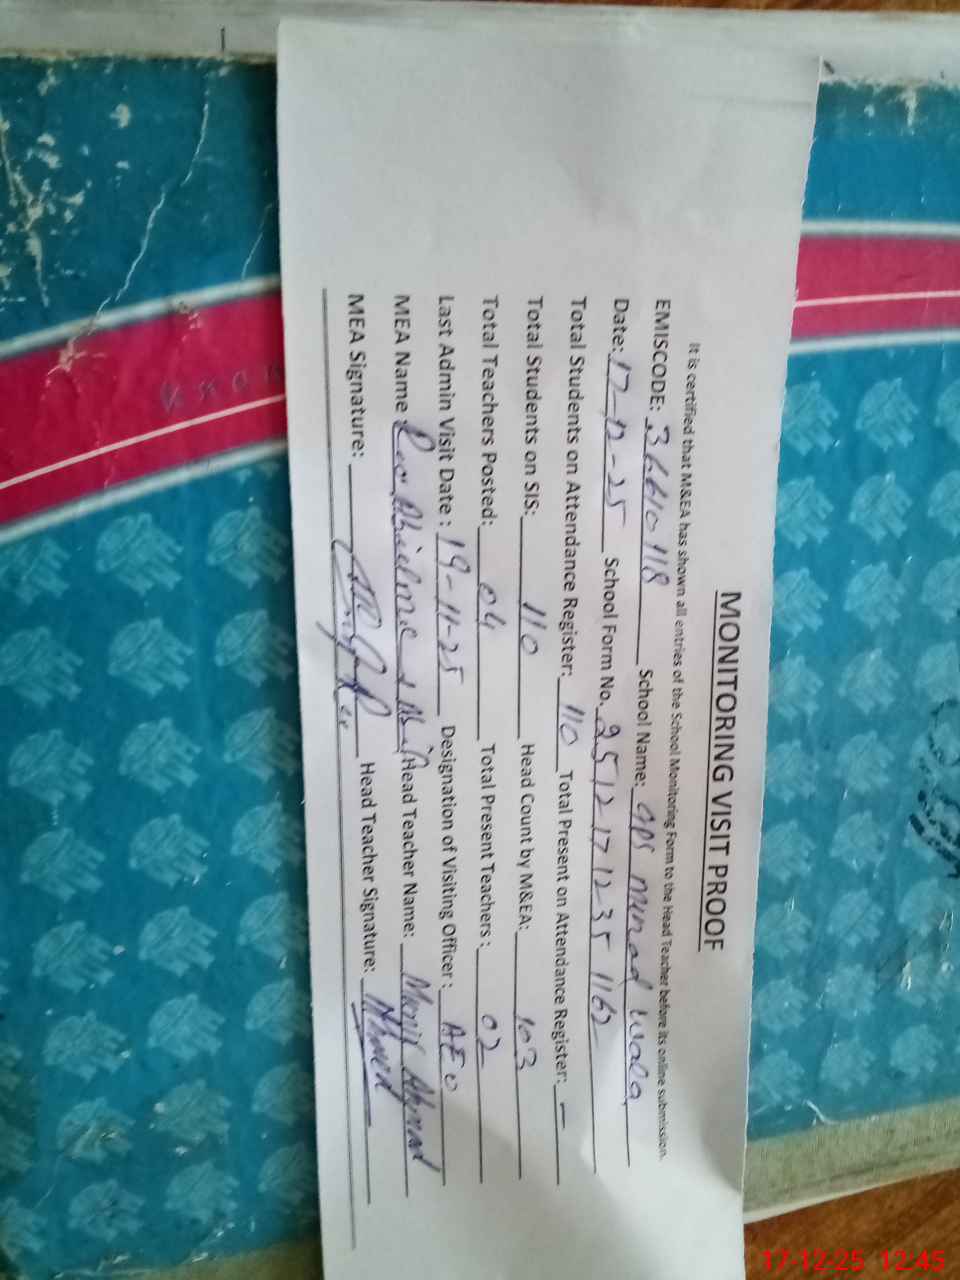 MONITORING VISIT PROOF
It is certified that M&EA has shown all entries of the School Monitoring Form to the Head Teacher before its online submission.
EMISCODE: 36610118 School Name: GPS Murad wala
Date: 17-12-25 School Form No. 2512171235 1162
Total Students on Attendance Register: 110 Total Present on Attendance Register: -
Total Students on SIS: 110 Head Count by M&EA: 103
Total Teachers Posted: 04 Total Present Teachers: 02
Last Admin Visit Date: 19-11-25 Designation of Visiting Officer: AEO
MEA Name Head Teacher Name: Munir Ahmad
MEA Signature: Head Teacher Signature: Ahmed
17-12-25 12:45